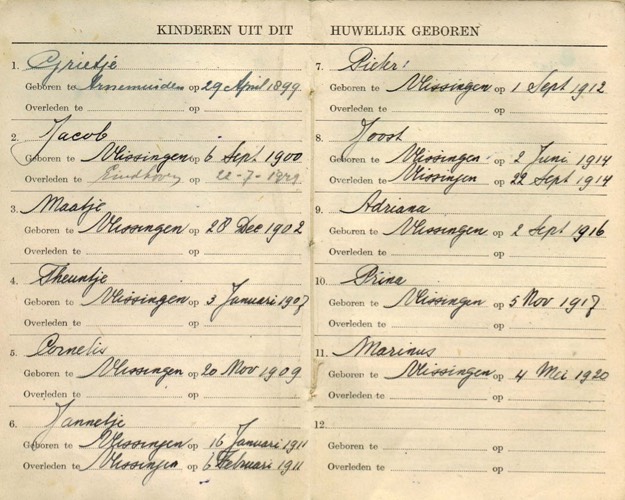 KINDEREN UIT DIT HUWELIJK GEBOREN
1. Grietje
Geboren te Arnemuiden op 29 April 1899
Overleden te op
2. Jacob
Geboren te Vlissingen op 6 Sept 1900
Overleden te Eindhoven op 22-7-
3. Maatje
Geboren te Vlissingen op 28 Dec 1902
Overleden te op
4. Theuntje
Geboren te Vlissingen op 3 Januari 1907
Overleden te op
5. Cornelis
Geboren te Vlissingen op 20 Nov 1909
Overleden te op
6. Jannetje
Geboren te Vlissingen op 16 Januari 1911
Overleden te Vlissingen op 6 Februari 1911
7. Pieter
Geboren te Vlissingen op 1 Sept 1912
Overleden te op
8. Joost
Geboren te Vlissingen op 2 Juni 1914
Overleden te Vlissingen op 22 Sept 1914
9. Adriana
Geboren te Vlissingen op 2 Sept 1916
Overleden te op
10. Prina
Geboren te Vlissingen op 5 Nov 1917
Overleden te op
11. Marinus
Geboren te Vlissingen op 4 Mei 1920
Overleden te op
12.
Geboren te op
Overleden te op